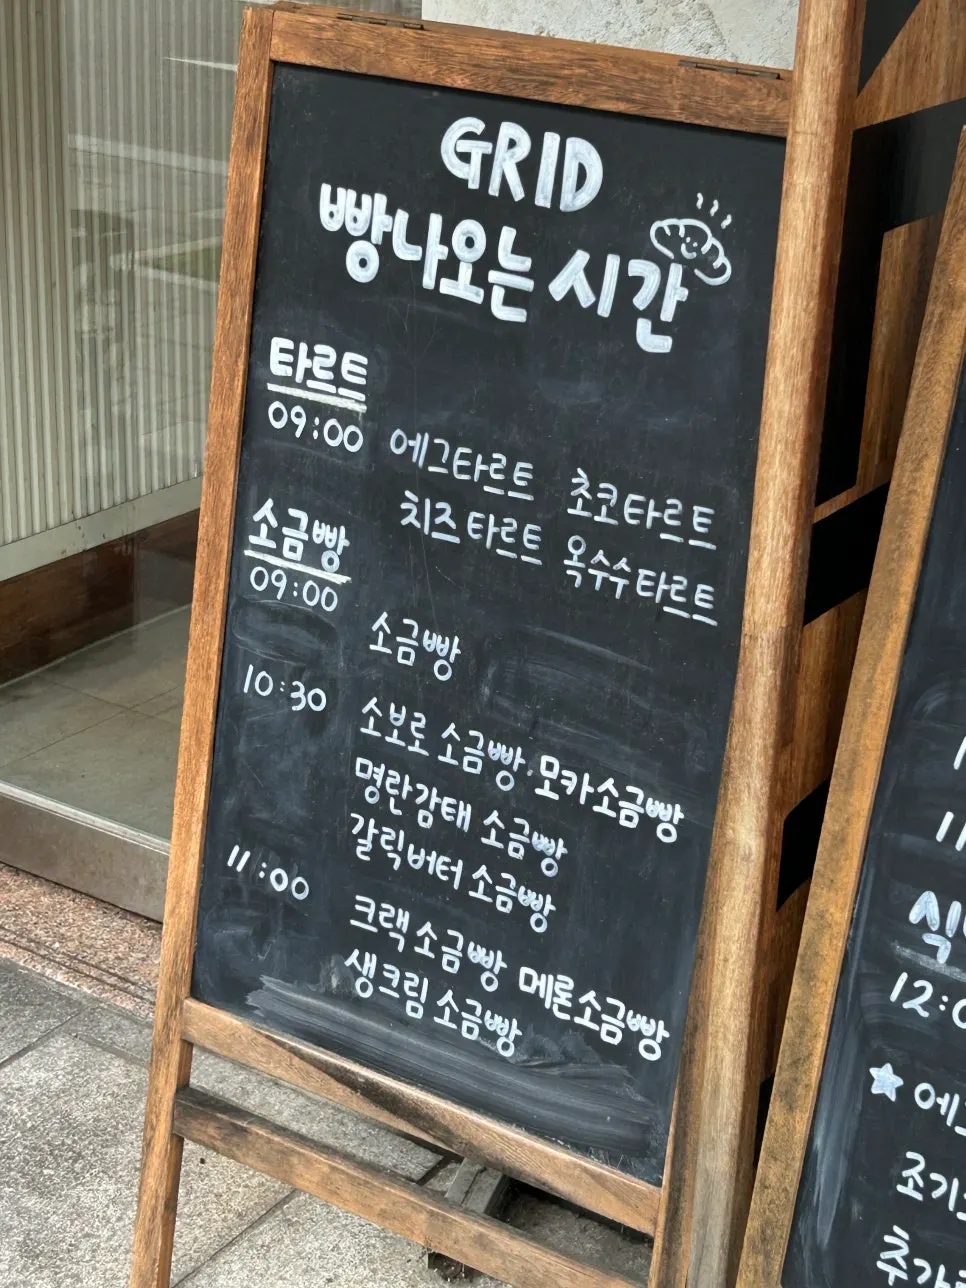 GRID
빵나오는 시간
타르트
09:00
에그타르트 초코타르트
치즈타르트 옥수수타르트
소금빵
09:00
소금빵
10:30
소보로 소금빵·모카소금빵
명란감태 소금빵
갈릭버터 소금빵
11:00
크랙소금빵 메론소금빵
생크림 소금빵
11
12:0
★에
조기
추가